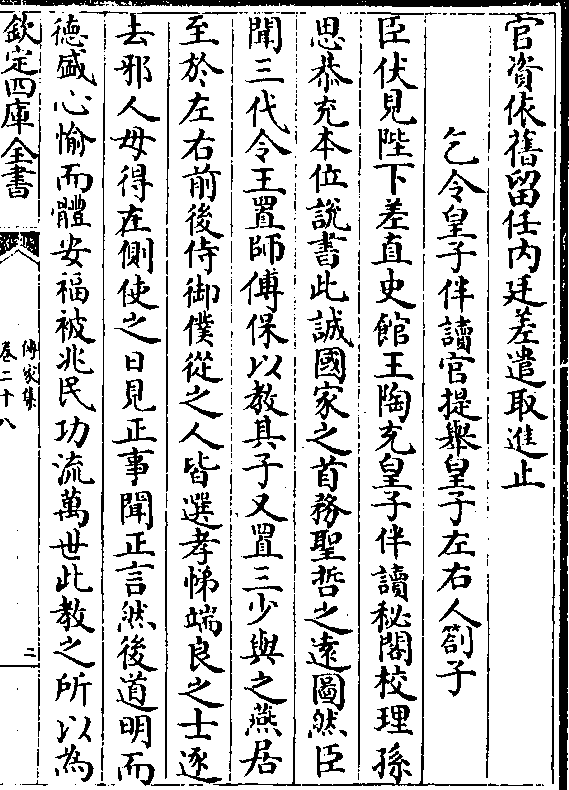 官資依舊留任内廷差遣取進止
乞令皇子伴讀官提舉皇子左右人劄子
臣伏見陛下差直史館王陶充皇子伴讀秘閣校理孫
思恭充本位說書此誠國家之首務聖哲之遠圖然臣
聞三代令王置師傅保以教其子又置三少與之燕居
至於左右前後侍御僕從之人皆選孝悌端良之士逐
去邪人毋得在側使之日見正事聞正言然後道明而
德盛心愉而體安福被兆民功流萬世此教之所以為
欽定四庫全書
傳家集
卷二十八
二